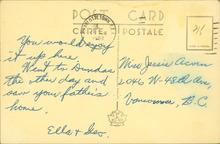 POST CARD
CARTE POSTALE
You would enjoy
it up here.
Went to Dundas
the other day and
saw your father's
home.
Ella & Geo.
Miss Jessie Acorn
2046 W-48th Ave.
Vancouver, B.C